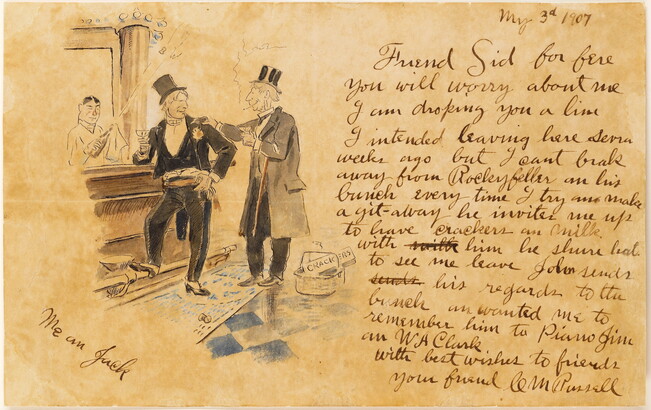 My 3d 1907
Friend Sid for fere
you will worry about me
I am droping you a line
I intended leaving here sevra
weeks ago but I cant brak
away from Rockyfeller an his
bunch every time I try an make
a git-away he invites me up
to have crackers an milk
with him he shure hates
to see me leave John sends
his regards to the
bunch an wanted me to
remember him to Piano Jim
an W A Clark
with best wishes to friends
your friend C M Russell
CRACKERS
Me an Jack